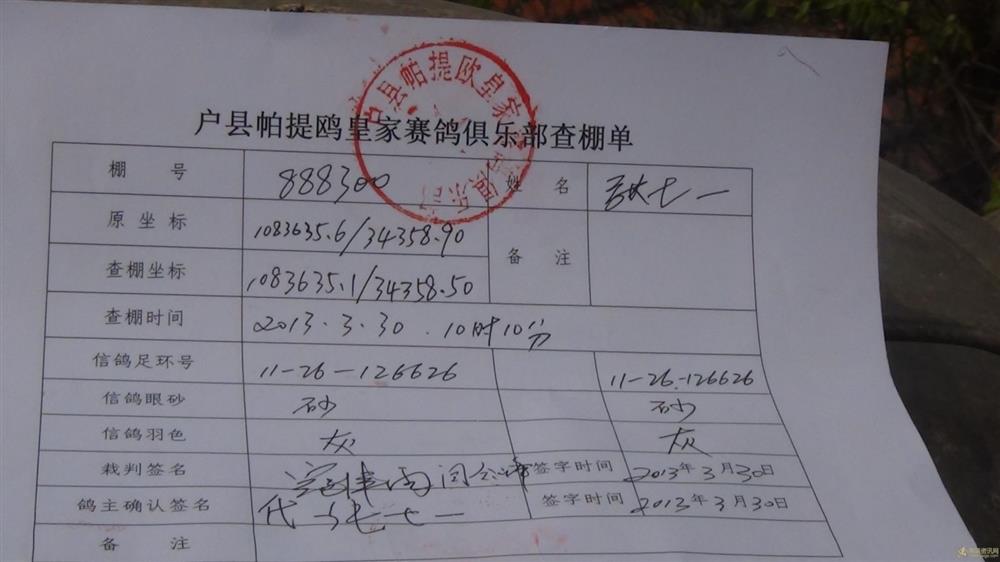 户县帕提欧皇家
户县帕提鸥皇家赛鸽俱乐部查棚单
棚 号 888300 姓 名 七一
原坐标 1083635.6/34358.90 备 注
查棚坐标 1083635.1/34358.50
查棚时间 2013.3.30.10时10分
信鸽足环号 11-26-126626 11-26-126626
信鸽眼砂 砂 砂
信鸽羽色 灰 灰
裁判签名 签字时间 2013年3月30日
鸽主确认签名 代 七一 签字时间 2013年3月30日
备 注